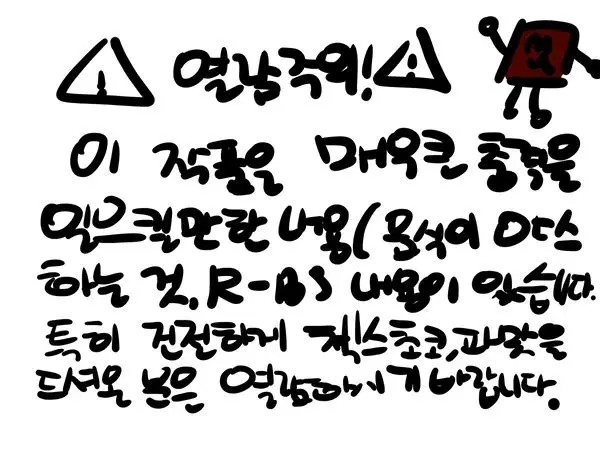 ⚠ 열람주의! ⚠
이 작품은 매우큰 충격을
일으킬만한 내용(문식이 야스
하는 것, R-BS 내용이 있습니다.
특히 건전하게 젝스초코,과맞을
드셔온 분은 열람하시기 바랍니다.